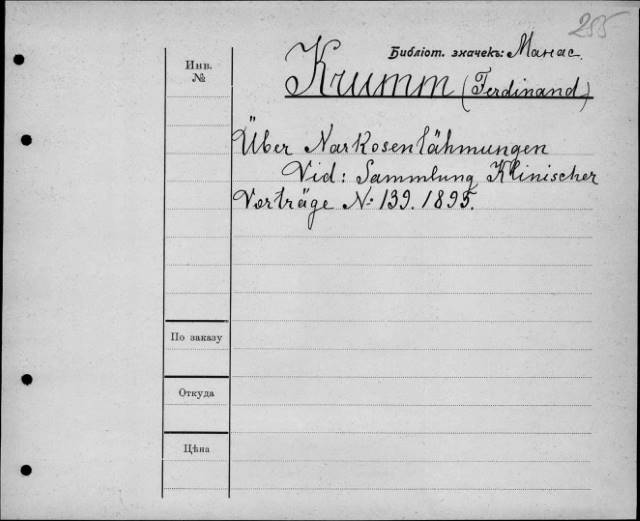 255
Библіот. значекъ: Манас.
Инв.
№
Krumm (Ferdinand)
Über Narkosenlähmungen
Vid: Sammlung Klinischer
Vorträge N: 139. 1895.
По заказу
Откуда
Цѣна